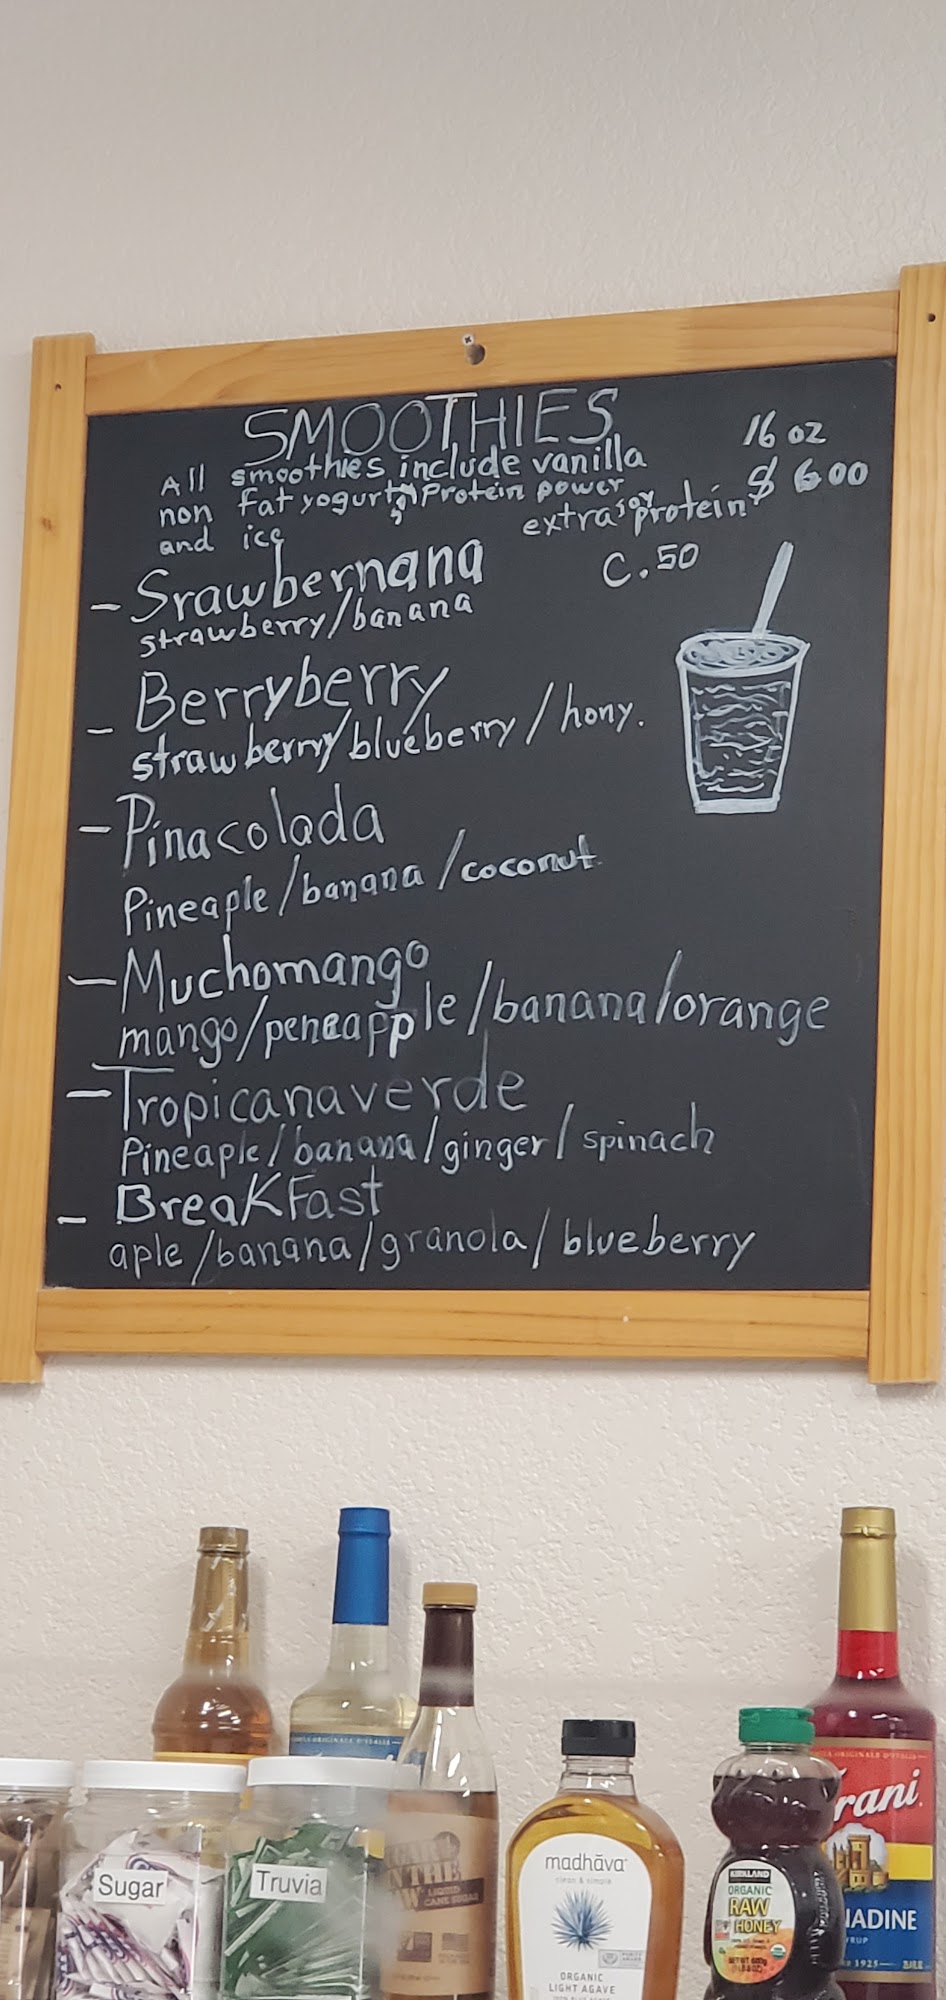 SMOOTHIES
16 oz
$ 6.00
All smoothies include vanilla
non fat yogurt, Protein power
and ice
extra soy protein
C.50
- Srawbernana
strawberry/banana
- Berryberry
strawberry/blueberry/hony.
- Pinacolada
Pineaple/banana/coconut
- Muchomango
mango/peneapple/banana/orange
- Tropicanaverde
Pineaple/banana/ginger/spinach
- BreaKFast
aple/banana/granola/blueberry
Sugar
Truvia
LIQUID
CANE SUGAR
madhāva
clean & simple
ORGANIC
LIGHT AGAVE
KIRKLAND
ORGANIC
RAW
HONEY
rani
NADINE
YRUP
1925